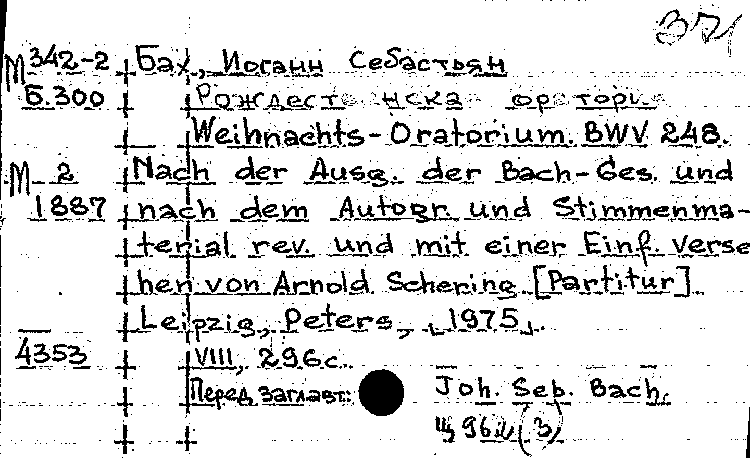 371
М 342-2 Бах, Иоганн Себастьян
Б.300 Рождест нска оратори
Weihnachts-Oratorium. BWV 248.
М 2 Nach der Ausg. der Bach-Ges. und
1887 nach dem Autogr. und Stimmenma-
terial rev. und mit einer Einf. verse
hen von Arnold Schering. [Partitur]
Leipzig, Peters, [1975].
4353 VIII, 296 с.
Перед заглавт: Joh. Seb. Bach.
(3)